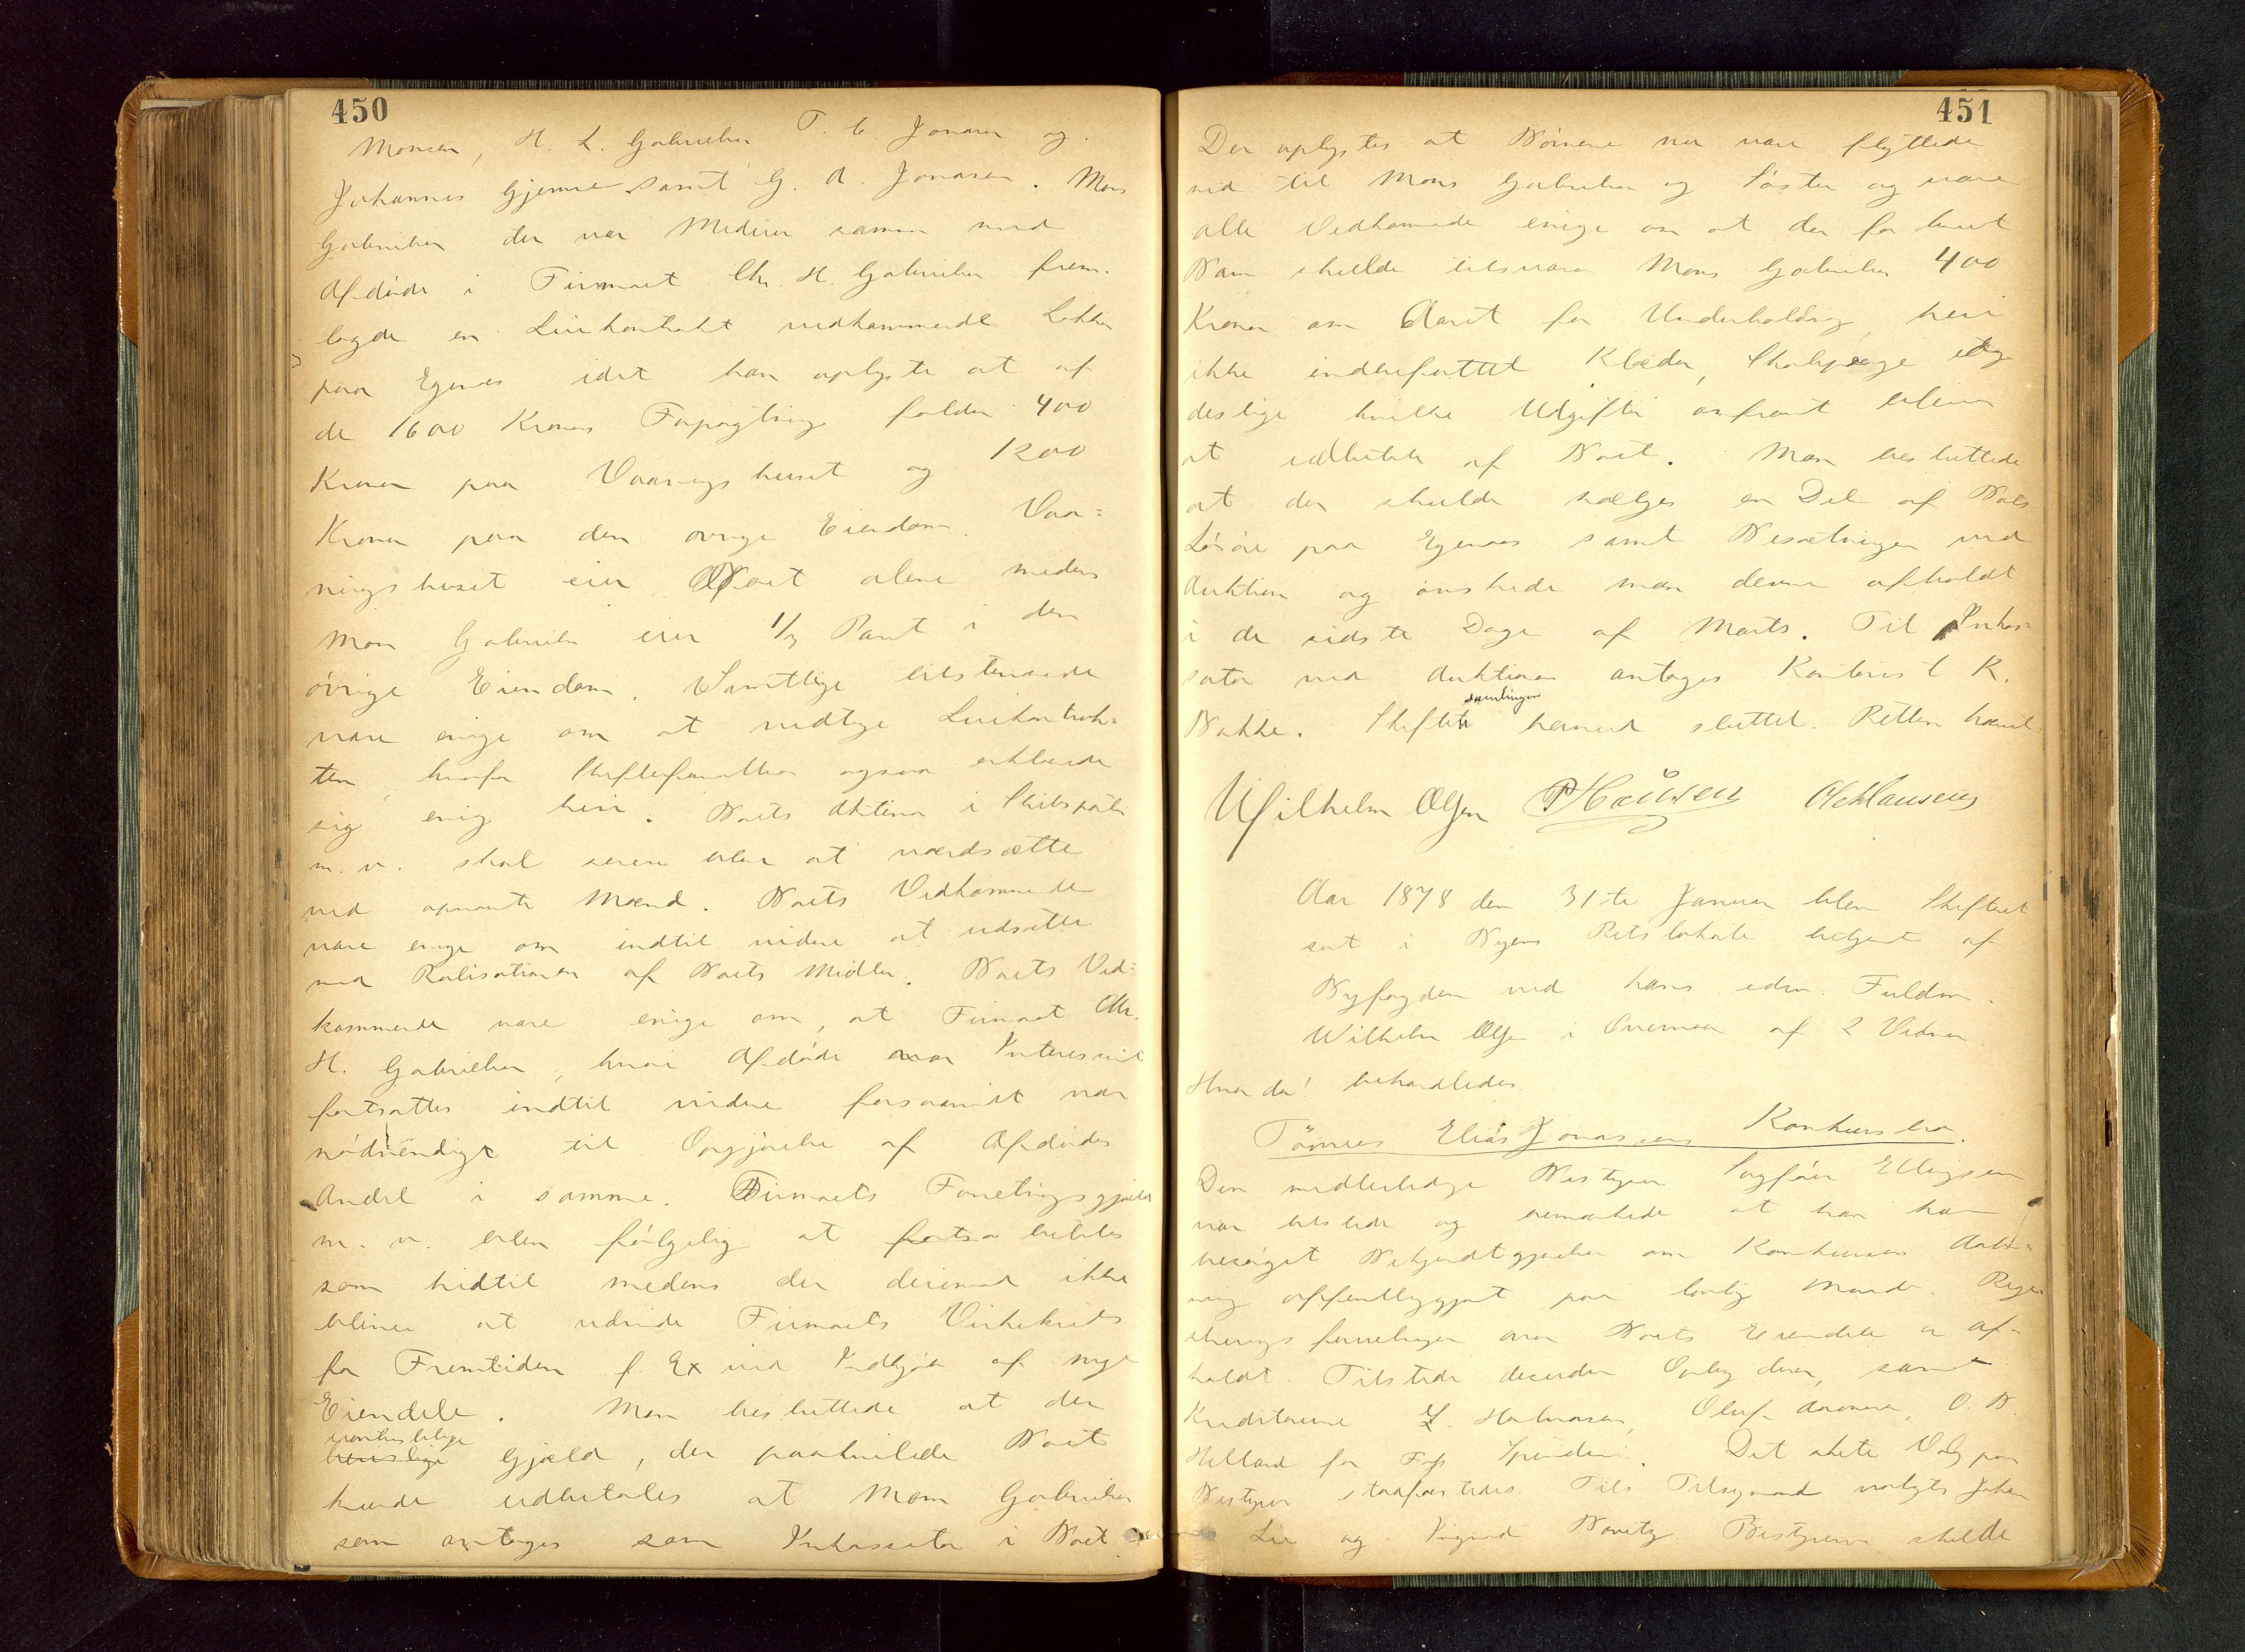 450
Monsen, H. L. Gabrielsen T. C. Jonasen og
Johannes Gjemre samt G. A. Jonasen. Mons
Gabrielsen der var Medeier sammen med
Afdøde i Firmaet Chr. H. Gabrielsen frem-
lagde en Leiekontrakt vedkommende Løkken
paa Egenes idet han oplyste at af
de 1600 Kroners Forpagtning falder 400
Kroner paa Vaaningshuset og 1200
Kroner paa den øvrige Eiendom. Vaa=
ningshuset eier Boet alene medens
Mons Gabrielsen eier 1/3 Part i den
øvrige Eiendom. Samtlige tilstedeværende
vare enige om at vedtage Leiekontrak=
ten, hvorfor Skifteforvalteren ogsaa erklærede
sig enig heri. Boets Aktier i Skibsparter
m. v. skal senere blive at værdsætte
ved opnævnte Mænd. Boets Vedkommende
vare enige om indtil videre at udsætte
med Realisationen af Boets Midler. Boets Ved=
kommende vare enige om, at Firmaet Chr.
H. Gabrielsen, hvori Afdøde var Interessent
fortsættes indtil videre forsaavidt var
nødvendigt til Opgjørelse af Afdødes
Andel i samme. Firmaets Forretningsgjæld
m. v. blev følgelig at betales
som hidtil medens der derimod ikke
bliver at udvide Firmaets Virkekreds
for Fremtiden f. Ex ved Indkjøb af nye
Eiendele. Man besluttede at den
uomtvistelige
Gjæld, der paahvilede Boet
kunde udbetales at Mons Gabrielsen
som antages som Inkassator i Boet.
451
Der oplystes at Børnene nu vare flyttede
ned til Mons Gabrielsen og Søster og vare
alle Vedkommende enige om at der for hvert
Barn skulde tilsvares Mons Gabrielsen 400
Kroner om Aaret for Underholdning, heri
ikke indbefattet Klæder, Skolepenge og
deslige hvilke Udgifter omfremt bliver
at udbetale af Boet. Man besluttede
at der skulde sælges en Del af Boets
Løsøre paa Egenes samt Besætningen ved
Auktion og ønskede man denne afholdt
i de sidste Dage af Marts. Til Inkas=
sator ved Auktionen antages Kontorist K.
samlingen
Bakke. Skifte hermed sluttet. Retten hævet.
Wilhelm Olsen P Hansen O Hansen
Aar 1878 den 31te Januar blev Skifteret
sat i Byens Retslokale betjent af
Byfogden ved hans edsv. Fuldm.
Wilhelm Olsen i Overvær af 2 Vidner
Hvor da! behandledes
Tønnes Elias Jonassens Konkursbo.
Den midlertidige Bestyrer Sagfører Ellingsen
var tilstede og bemærkede at han har
besørget Bekjendtgjørelsen om Konkursens Aab=
ning offentliggjort paa lovlig Maade. Regi
streringsforretningen over Boets Eiendele er af=
holdt. Tilstede desuden Opbyderen, samt
Kreditorerne Halvorsen, Oluf Aarenes, O. B.
Helland for Fos Spinderi. Det skete Valg paa
Bestyrer stadfæstedes. Til Tilsynsmænd valgtes Johan
Lie og Sigvard Bovitz. Bestyreren skulde